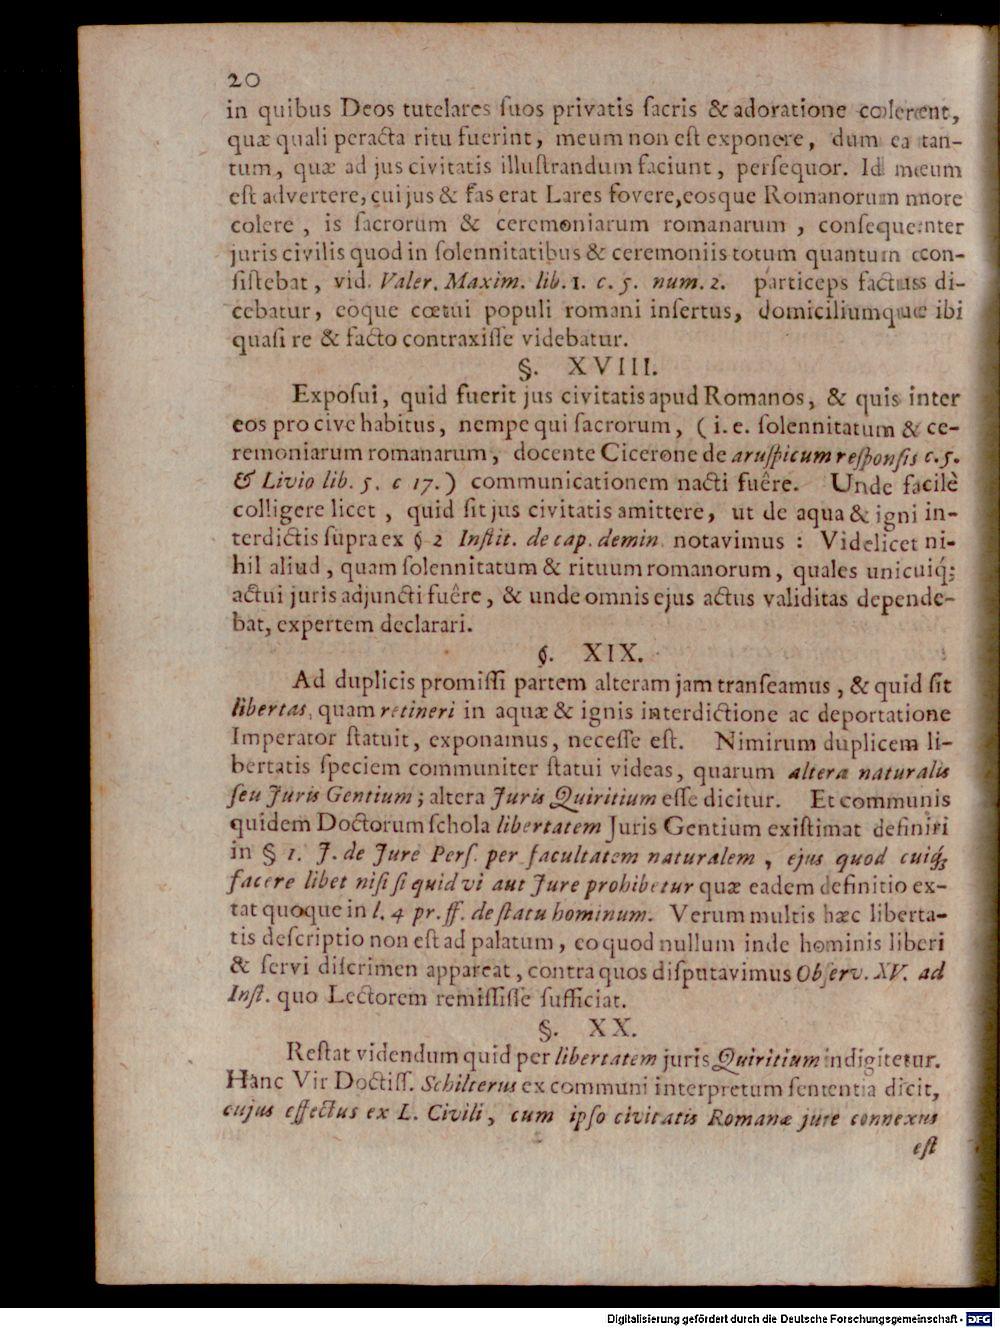 20
in quibus Deos tutelares ſuos privatis ſacris & adoratione colerent,
quæ quali peracta ritu fuerint, meum non eſt exponere, dum ea tan-
tum, quæ ad jus civitatis illuſtrandum faciunt, perſequor. Id meum
eſt advertere, cui jus & fas erat Lares fovere, eosque Romanorum more
colere, is ſacrorum & ceremoniarum romanarum, conſequenter
juris civilis quod in ſolennitatibus & ceremoniis totum quantum con-
ſiſtebat, vid. Valer. Maxim. lib. 1. c. 5. num. 2. particeps factus di-
cebatur, eoque cœtui populi romani inſertus, domiciliumque ibi
quaſi re & facto contraxiſſe videbatur.
§. XVIII.
Expoſui, quid fuerit jus civitatis apud Romanos, & quis inter
eos pro cive habitus, nempe qui ſacrorum, (i. e. ſolennitatum & ce-
remoniarum romanarum, docente Cicerone de aruſpicum reſponſis c. 5.
& Livio lib. 5. c 17.) communicationem nacti fuêre. Unde facilè
colligere licet, quid ſit jus civitatis amittere, ut de aqua & igni in-
terdictis ſupra ex § 2 Inſtit. de cap. demin. notavimus: Videlicet ni-
hil aliud, quam ſolennitatum & rituum romanorum, quales unicuiq́;
actui juris adjuncti fuêre, & unde omnis ejus actus validitas depende-
bat, expertem declarari.
§. XIX.
Ad duplicis promiſſi partem alteram jam tranſeamus, & quid ſit
libertas, quam retineri in aquæ & ignis interdictione ac deportatione
Imperator ſtatuit, exponamus, neceſſe eſt. Nimirum duplicem li-
bertatis ſpeciem communiter ſtatui videas, quarum altera naturalis
ſeu Juris Gentium; altera Juris Quiritium eſſe dicitur. Et communis
quidem Doctorum ſchola libertatem Juris Gentium exiſtimat definiri
in § 1. J. de Jure Perſ. per facultatem naturalem, ejus quod cuiq́;
facere libet niſi ſi quid vi aut Jure prohibetur quæ eadem definitio ex-
tat quoque in l. 4 pr. ff. de ſtatu hominum. Verum multis hæc liberta-
tis deſcriptio non eſt ad palatum, eo quod nullum inde hominis liberi
& ſervi diſcrimen appareat, contra quos diſputavimus Obſerv. XV. ad
Inſt. quo Lectorem remiſſiſſe ſufficiat.
§. XX.
Reſtat videndum quid per libertatem juris Quiritium indigitetur.
Hanc Vir Doctiſſ. Schilterus ex communi interpretum ſententia dicit,
cujus effectus ex L. Civili, cum ipſo civitatis Romanæ jure connexus
eſt
Digitalisierung gefördert durch die Deutsche Forschungsgemeinschaft - DFG